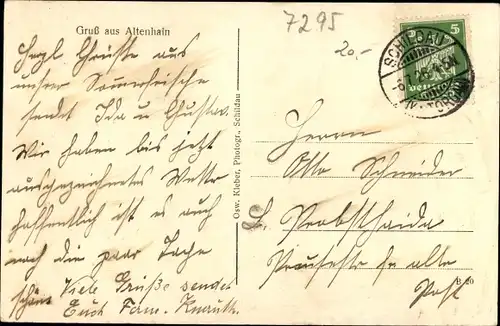 Gruß aus Altenhain
7295
20.-
Herzl. Grüße aus
unsrer Sommerfrische
sendet Ida u Gustav.
Wir haben bis jetzt
ausgezeichnetes Wetter
hoffentlich ist es auch
noch die paar Tage
schön Viele Grüße sendet
Euch Fam. Knauth.
Osw. Kleber, Photogr., Schildau
5
SCHILDAU
TORGAU
Herrn
Otto Schneider
L. Probstheida
alte
Post
B 20